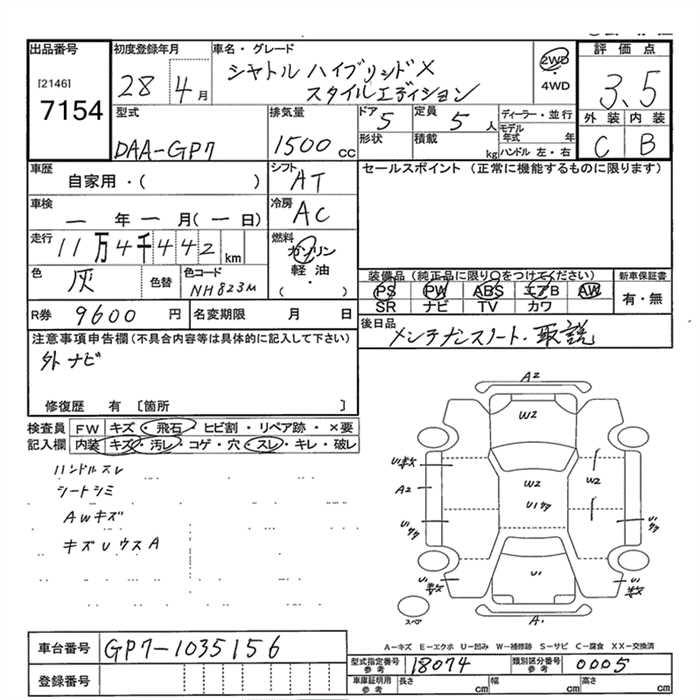 出品番号 初度登録年月 車名・グレード 評価点
[2146]
7154
28 4月 シャトル ハイブリッド X
スタイルエディション
2WD
・
4WD
3.5
外装 内装
C B
型式 排気量 ドア 定員 ディーラー・並行
DAA-GP7 1500cc 5 5人
形状 積載 kg
モデル年式 年
ハンドル 左・右
車歴 シフト セールスポイント (正常に機能するものに限ります)
自家用・( ) AT
車検 冷房
ー年ー月(ー日) AC
走行 燃料
11万4千442km ガソリン
軽・油
・( )
色 色替 色コード
灰 NH823M
装備品(純正品に限り○をつけてください) 新車保証書
PS PW ABS エアB AW 有・無
SR ナビ TV カワ
R券 9600円 名変期限 月 日
後日品
メンテナンスノート・取説
注意事項申告欄(不具合内容等は具体的に記入して下さい)
外ナビ
修復歴 有 [箇所 ]
検査員 FW キズ・飛石・ヒビ割・リペア跡・×要
記入欄 内装 キズ・汚レ・コゲ・穴・スレ・キレ・破レ
ハンドルスレ
シートシミ
AWキズ
キズUウスA
A2
W2
U1数
A2
W2
W2
U1ササ
U1ササ
U1ササ
U1数
U1
U1数
スペア
A1
A-キズ E-エクボ U-凹み W-補修跡 S-サビ C-腐食 XX-交換済
車台番号 GP7-1035156
登録番号
型式指定番号 参考 18074 類別区分番号 参考 0005
車庫証明用 参考 長さ cm 幅 cm 高さ cm